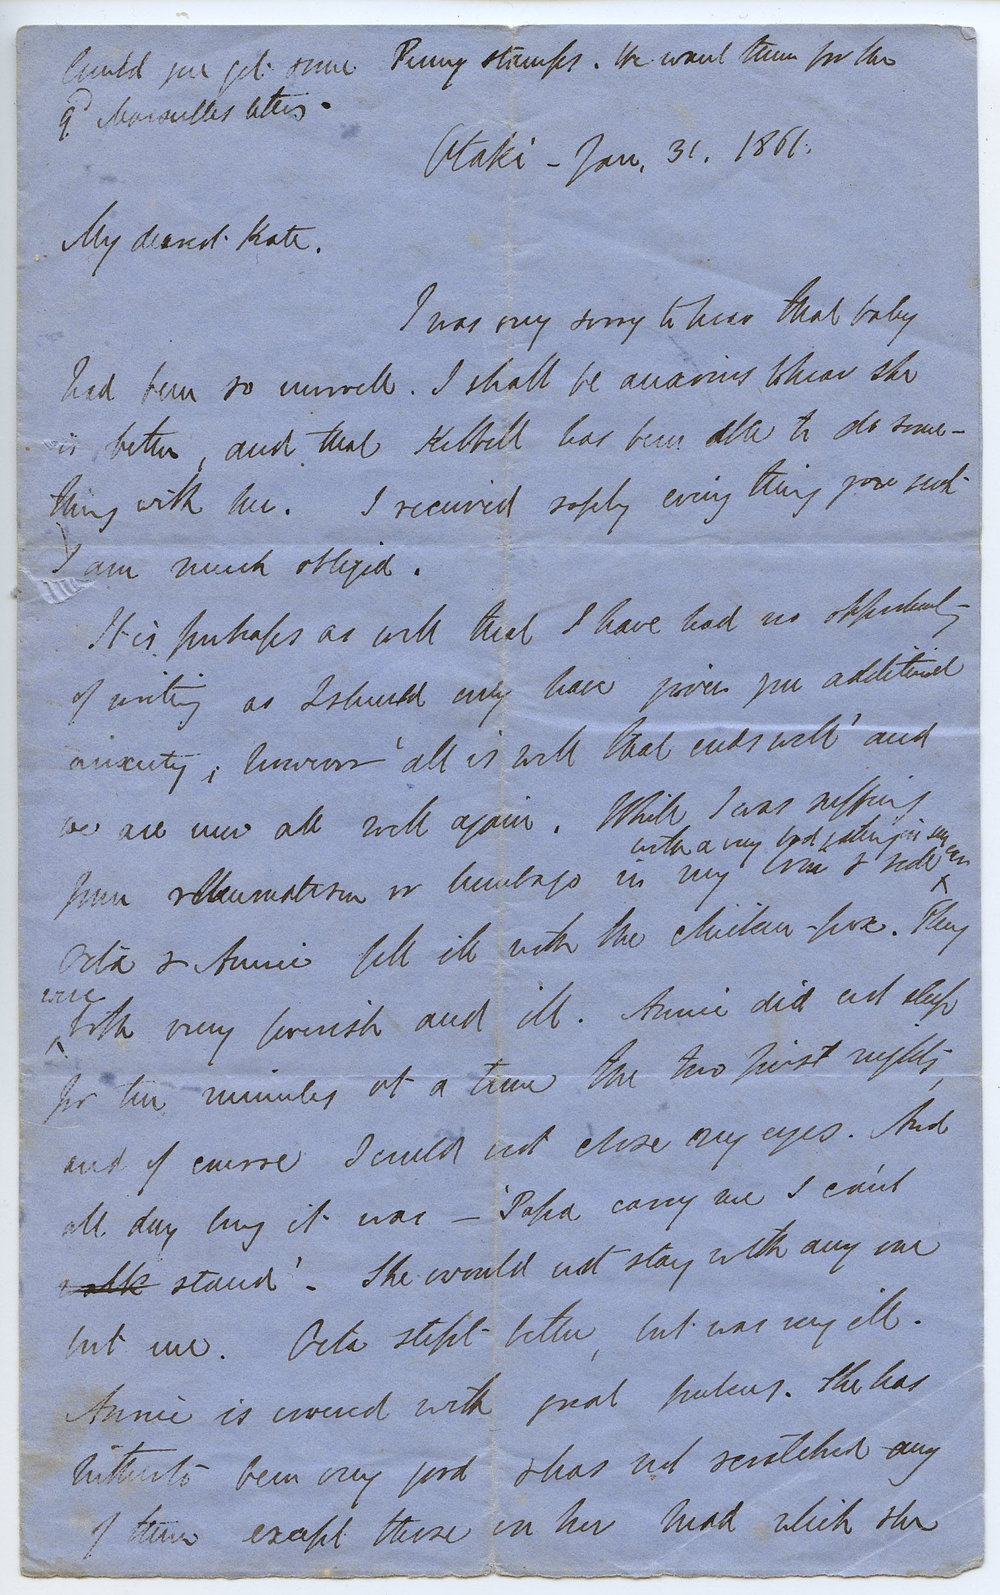 Could you get some Penny stamps. We want them for the
9d Marseilles letters.
Otaki - Jan, 31. 1861.
My dearest Kate.
I was very sorry to hear that baby
had been so unwell. I shall be anxious to hear she
is better, and that Kebbell has been able to do some-
thing with her. I received safely every thing you sent
I am much obliged.
It is perhaps as well that I have had no opportunity
of writing as I should only have given you additional
anxiety; however 'all is well that ends well' and
we are now all well again. While I was suffering
with a very bad in my
from rheumatism or lumbago in my loins & side
Octa & Annie fell ill with the chicken-pox. They
were
both very feverish and ill. Annie did not sleep
for ten minutes at a time the two first nights,
and of course I could not close my eyes. And
all day long it was - 'Papa carry me I can't
walk stand'. She would not stay with any one
but me. Octa slept better, but was very ill.
Annie is covered with great . She has
hitherto been very good & has not scratched any
of them except those on her head which she